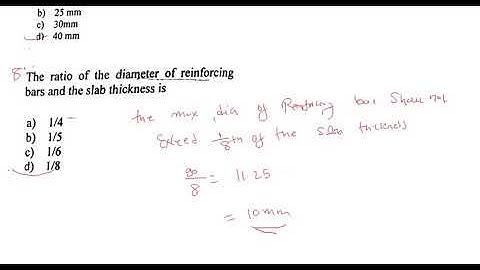 b) 25 mm
c) 30mm
d) 40 mm
8. The ratio of the diameter of reinforcing
bars and the slab thickness is
a) 1/4
b) 1/5
c) 1/6
d) 1/8
the max, dia of Reinforcing bar Shall not
Exceed 1/8 th of the slab thickness
90/8 = 11.25
= 10mm